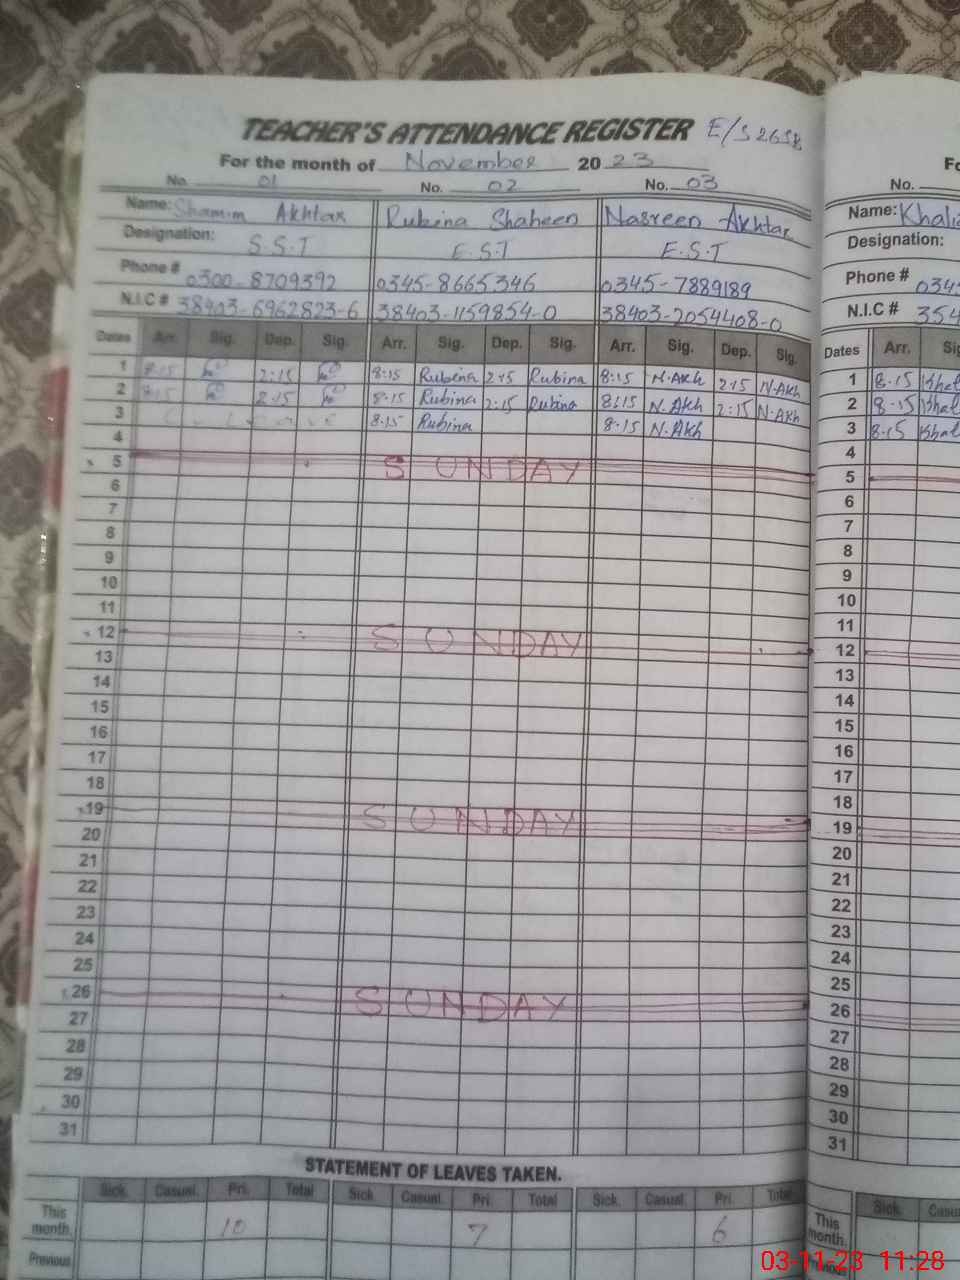 TEACHER'S ATTENDANCE REGISTER
For the month of November 2023
No. 01 No. 02 No. 03
Name: Shamim Akhtar Rubina Shaheen Nasreen Akhtar
Designation: S.S.T E.S.T E.S.T
Phone # 0300-8709392 0345-8665346 0345-7889189
N.I.C # 38403-6962823-6 38403-1159854-0 38403-2054408-0
Dates Arr. Sig. Dep. Sig. Arr. Sig. Dep. Sig. Arr. Sig. Dep. Sig.
1 8-15 2:15 8:15 Rubina 2-15 Rubina 8:15 N.Akh 2-15 N.Akh
2 8-15 2:15 8-15 Rubina 2:15 Rubina 8:15 N.Akh 2:15 N.Akh
3 8-15 Rubina 8-15 N.Akh
4
5 SUNDAY
6
7
8
9
10
11
12 SUNDAY
13
14
15
16
17
18
19 SUNDAY
20
21
22
23
24
25
26 SUNDAY
27
28
29
30
31
STATEMENT OF LEAVES TAKEN.
Sick. Casual. Pri. Total Sick. Casual. Pri. Total Sick. Casual. Pri. Total
This month. 10 7 6
Previous
No.
Name:
Designation:
Phone #
N.I.C #
Dates Arr.
1 8-15
2 8-15
3 8-15
4
5
6
7
8
9
10
11
12
13
14
15
16
17
18
19
20
21
22
23
24
25
26
27
28
29
30
31
Sick.
This month.
03-11-23 11:28